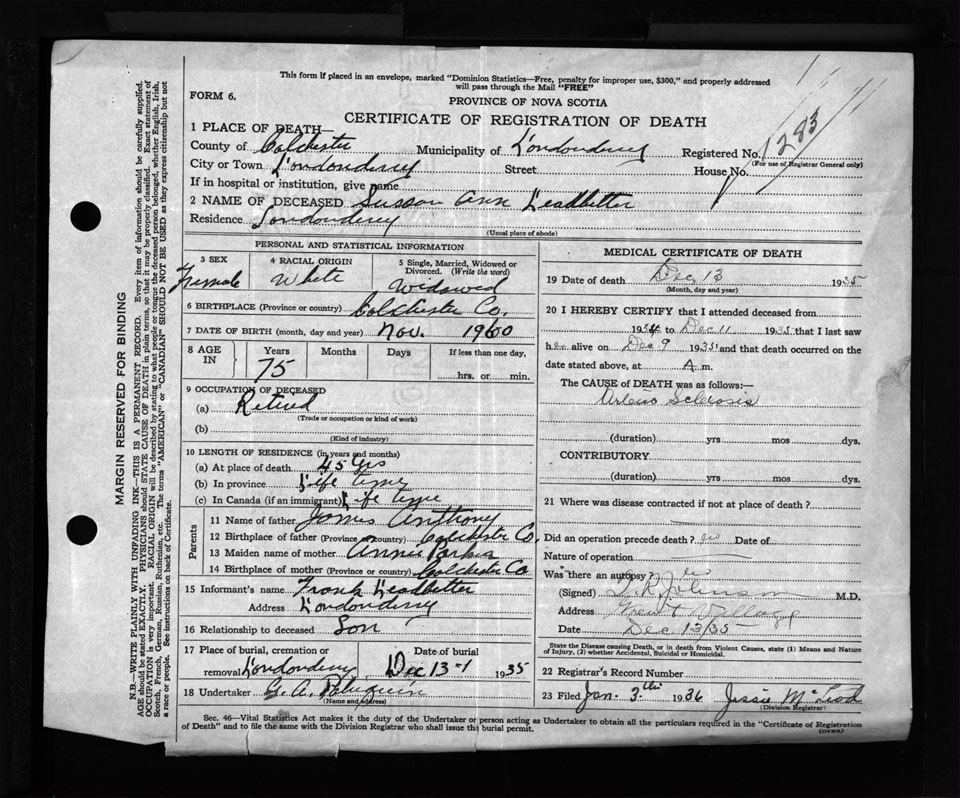 This form if placed in an envelope, marked "Dominion Statistics—Free, penalty for improper use, $300," and properly addressed
will pass through the Mail "FREE"
FORM 6.
PROVINCE OF NOVA SCOTIA
CERTIFICATE OF REGISTRATION OF DEATH
1283
1 PLACE OF DEATH—
County of Colchester Municipality of Londonderry Registered No.
(For use of Registrar General only)
City or Town Londonderry Street House No.
If in hospital or institution, give name
2 NAME OF DECEASED Susson Ann Leadbetter
Residence Londonderry
(Usual place of abode)
PERSONAL AND STATISTICAL INFORMATION
3 SEX Female
4 RACIAL ORIGIN White
5 Single, Married, Widowed or Divorced. (Write the word) Widowed
6 BIRTHPLACE (Province or country) Colchester Co.
7 DATE OF BIRTH (month, day and year) Nov. 1960
8 AGE IN Years Months Days If less than one day,
75 hrs. or min.
9 OCCUPATION OF DECEASED
(a) Retired
(Trade or occupation or kind of work)
(b)
(Kind of industry)
10 LENGTH OF RESIDENCE (in years and months)
(a) At place of death 45 yrs
(b) In province Life time
(c) In Canada (if an immigrant) Life time
Parents
11 Name of father James Anthony
12 Birthplace of father (Province or country) Colchester Co.
13 Maiden name of mother Annie
14 Birthplace of mother (Province or country) Colchester Co
15 Informant's name Frank Leadbetter
Address Londonderry
16 Relationship to deceased Son
17 Place of burial, cremation or removal Londonderry Date of burial Dec 13-1 1935
18 Undertaker
(Name and address)
MEDICAL CERTIFICATE OF DEATH
19 Date of death Dec 13 1935
(Month, day and year)
20 I HEREBY CERTIFY that I attended deceased from
1934 to Dec 11 1935 that I last saw
h er alive on Dec 9 1935 and that death occurred on the
date stated above, at A m.
The CAUSE of DEATH was as follows:—
Arterio Sclerosis
(duration) yrs mos dys.
CONTRIBUTORY
(duration) yrs mos dys.
21 Where was disease contracted if not at place of death?
Did an operation precede death? no Date of
Nature of operation
Was there an autopsy? no
(Signed) Johnson M.D.
Address Great Village
Date Dec 13/35
State the Disease causing Death, or in death from Violent Causes, state (1) Means and Nature
of Injury, (2) whether Accidental, Suicidal or Homicidal.
22 Registrar's Record Number
23 Filed Jan. 3rd 1936 Jessie McLeod
(Division Registrar)
Sec. 46—Vital Statistics Act makes it the duty of the Undertaker or person acting as Undertaker to obtain all the particulars required in the "Certificate of Registration
of Death" and to file the same with the Division Registrar who shall issue the burial permit.
(OVER)
MARGIN RESERVED FOR BINDING
N.B.—WRITE PLAINLY WITH UNFADING INK—THIS IS A PERMANENT RECORD. Every item of information should be carefully supplied.
AGE should be stated EXACTLY. PHYSICIANS should STATE CAUSE OF DEATH in plain terms, so that it may be properly classified. Exact statement of
OCCUPATION is very important. RACIAL ORIGIN will be described by stating to what people or tongue the deceased person belonged, whether English, Irish,
Scotch, French, German, Russian, Ruthenian, etc. The terms "AMERICAN" or "CANADIAN" SHOULD NOT BE USED as they express citizenship but not
a race or people. See instructions on back of Certificate.